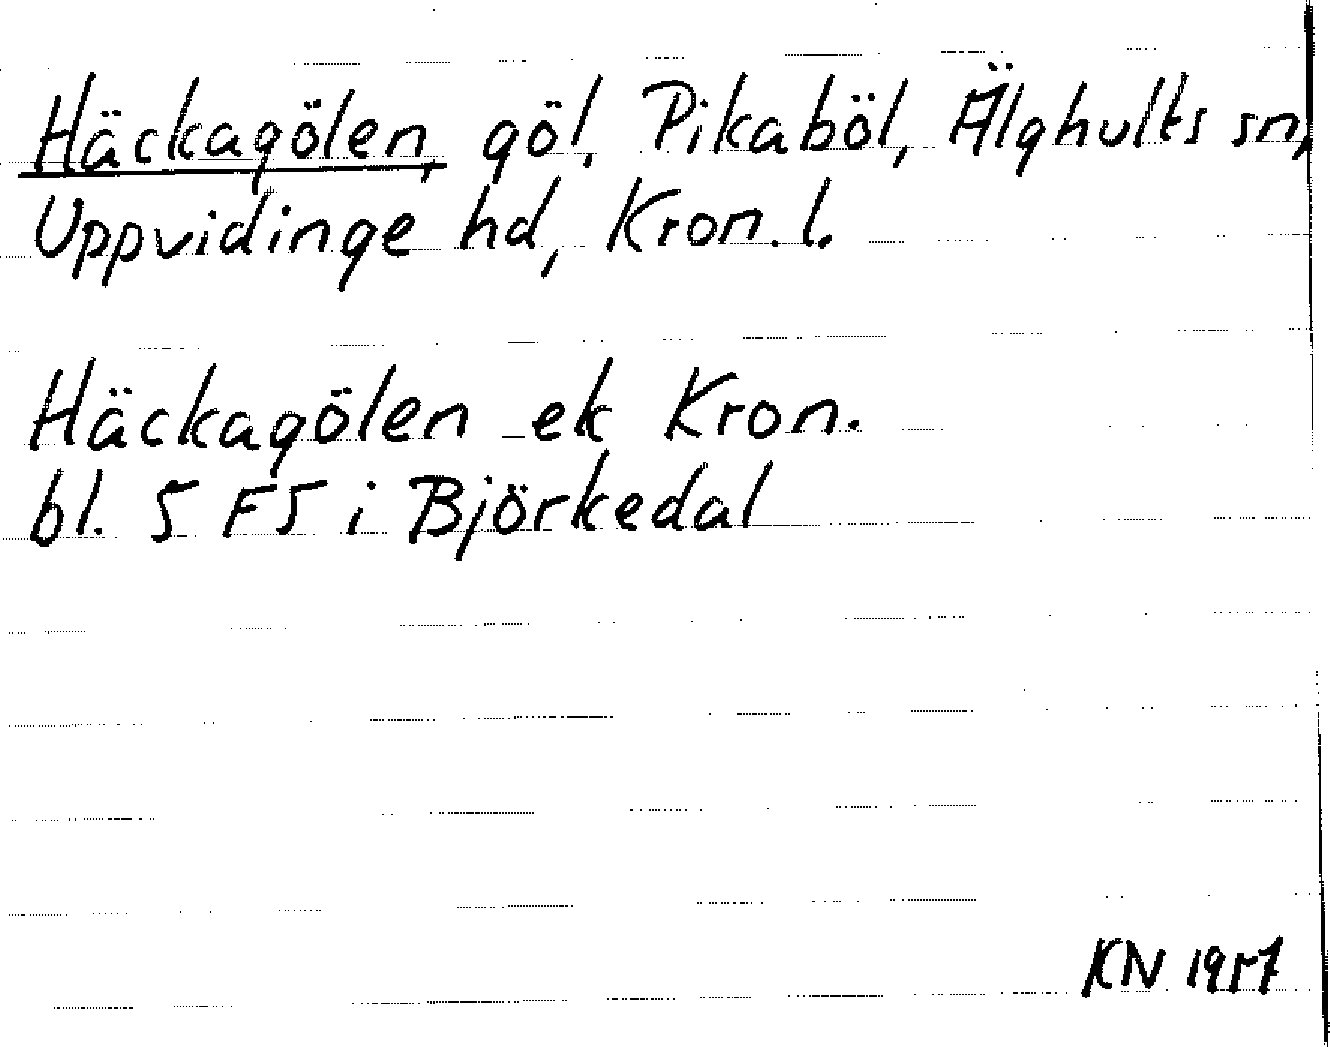 Häckagölen, göl, Pikaböl, Älghults sn,
Uppvidinge hd, Kron. l.
Häckagölen ek Kron.
bl. 5 F5 i Björkedal
KN 1957